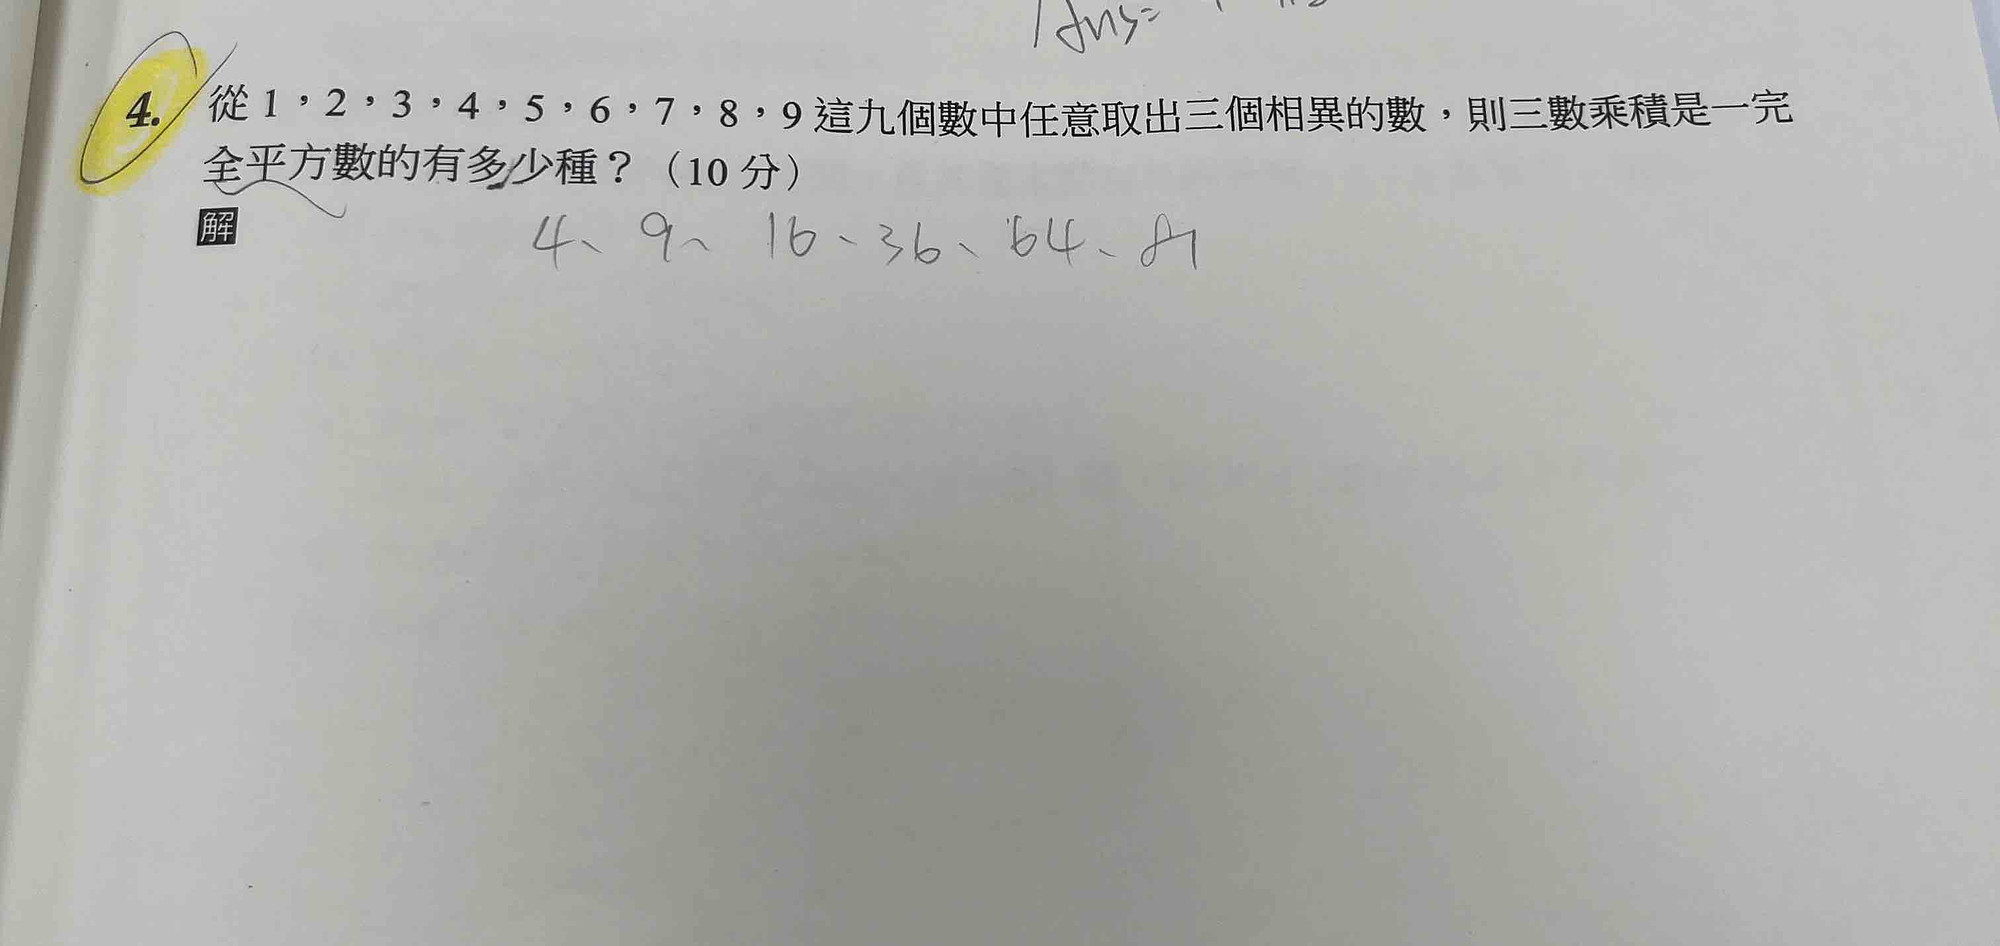 Ans=
4. 從1,2,3,4,5,6,7,8,9這九個數中任意取出三個相異的數,則三數乘積是一完
全平方數的有多少種?(10分)
解
4、9、16、36、64、81